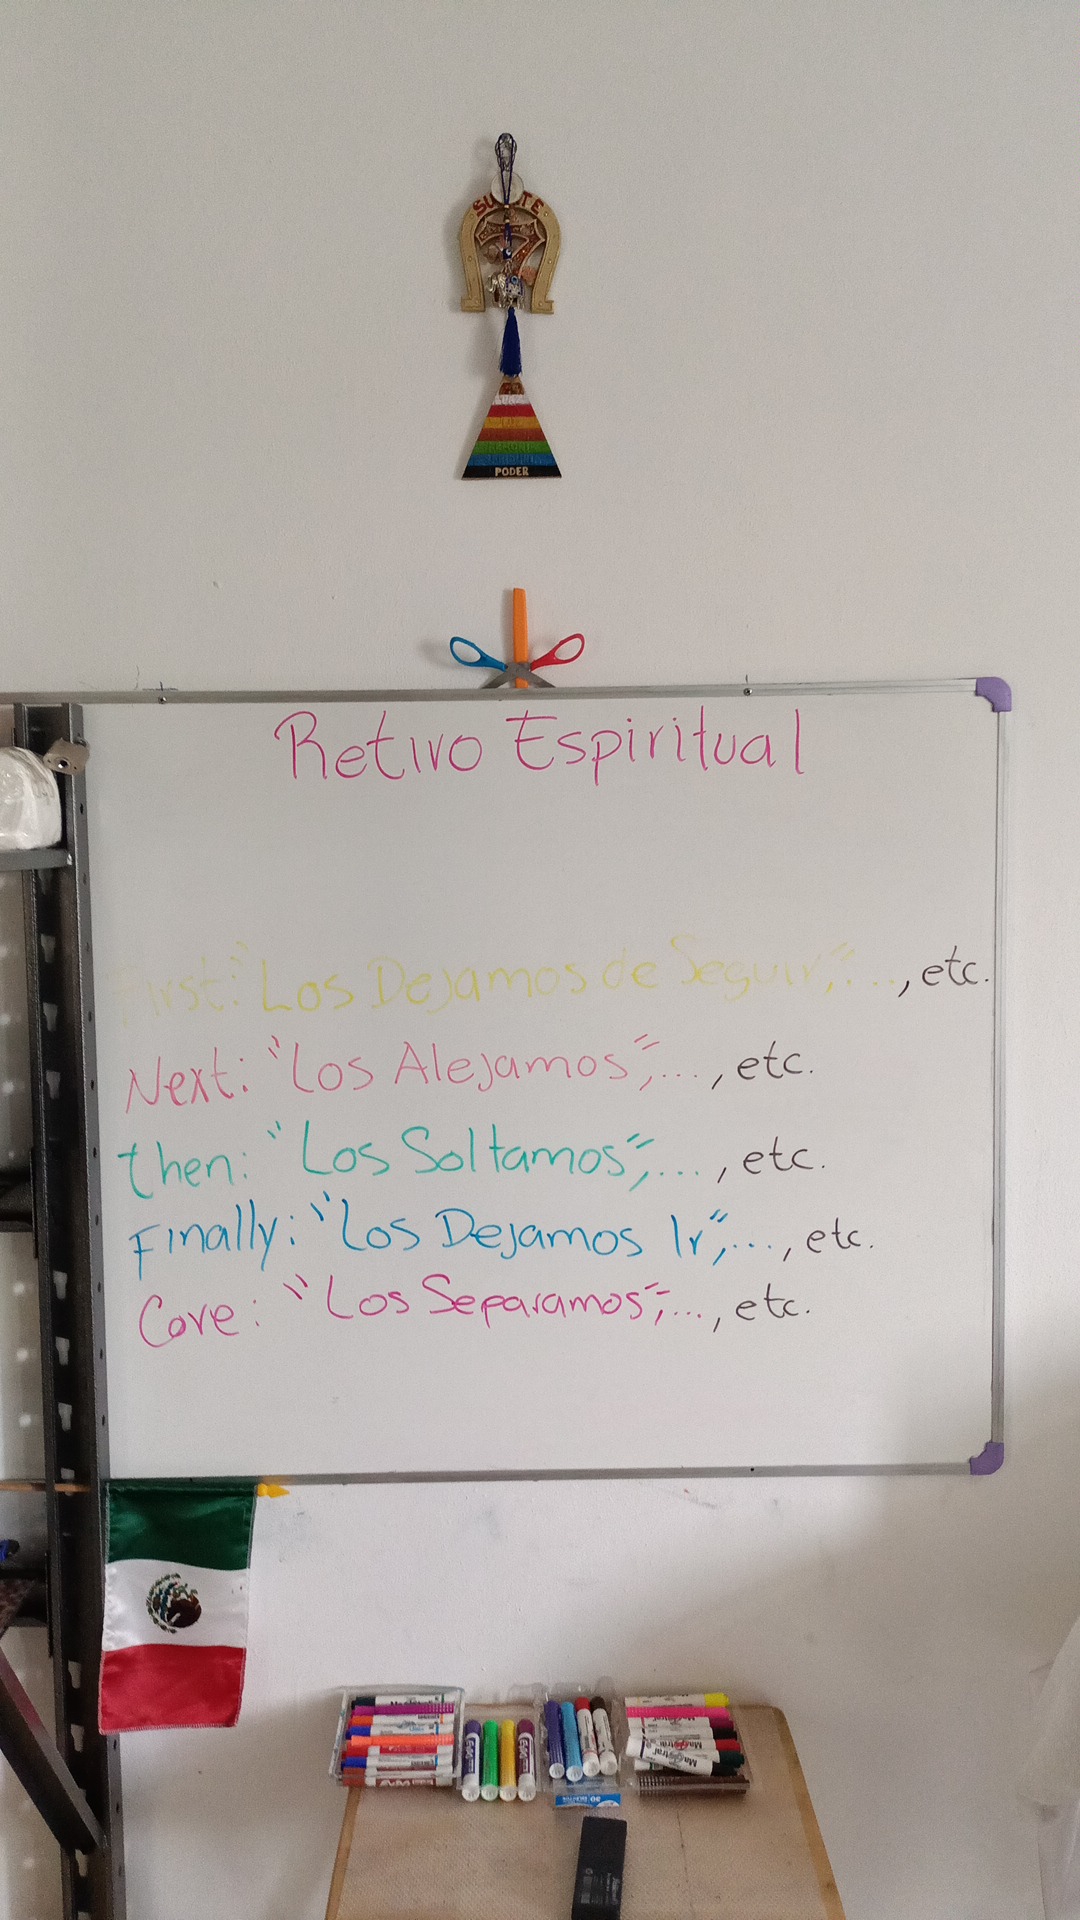 SUERTE
7
PODER
Retiro Espiritual
First: "Los Dejamos de Seguir", ..., etc.
Next: "Los Alejamos", ..., etc.
then: "Los Soltamos", ..., etc.
Finally: "Los Dejamos Ir", ..., etc.
Core: "Los Separamos", ..., etc.